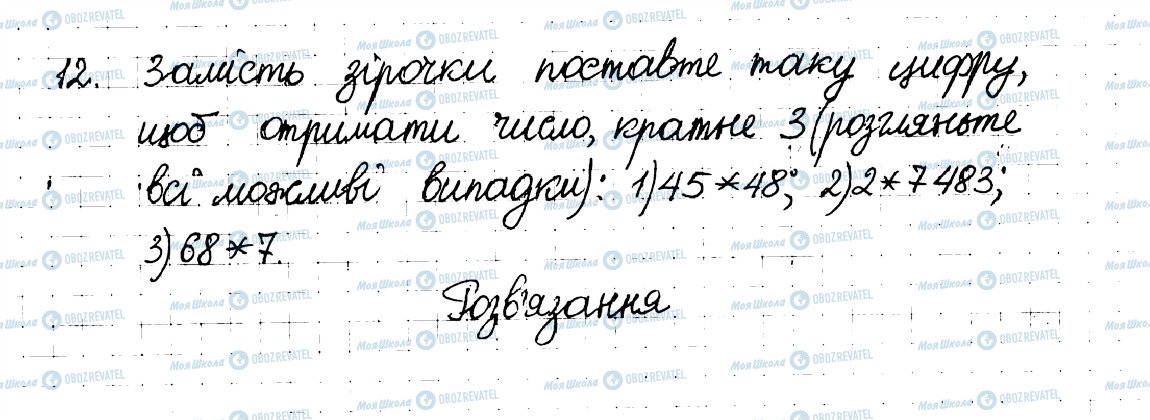 12. Замість зірочки поставте таку цифру,
щоб отримати число, кратне 3 (розгляньте
всі можливі випадки): 1) 45*48; 2) 2*7483;
3) 68*7.
Розв'язання